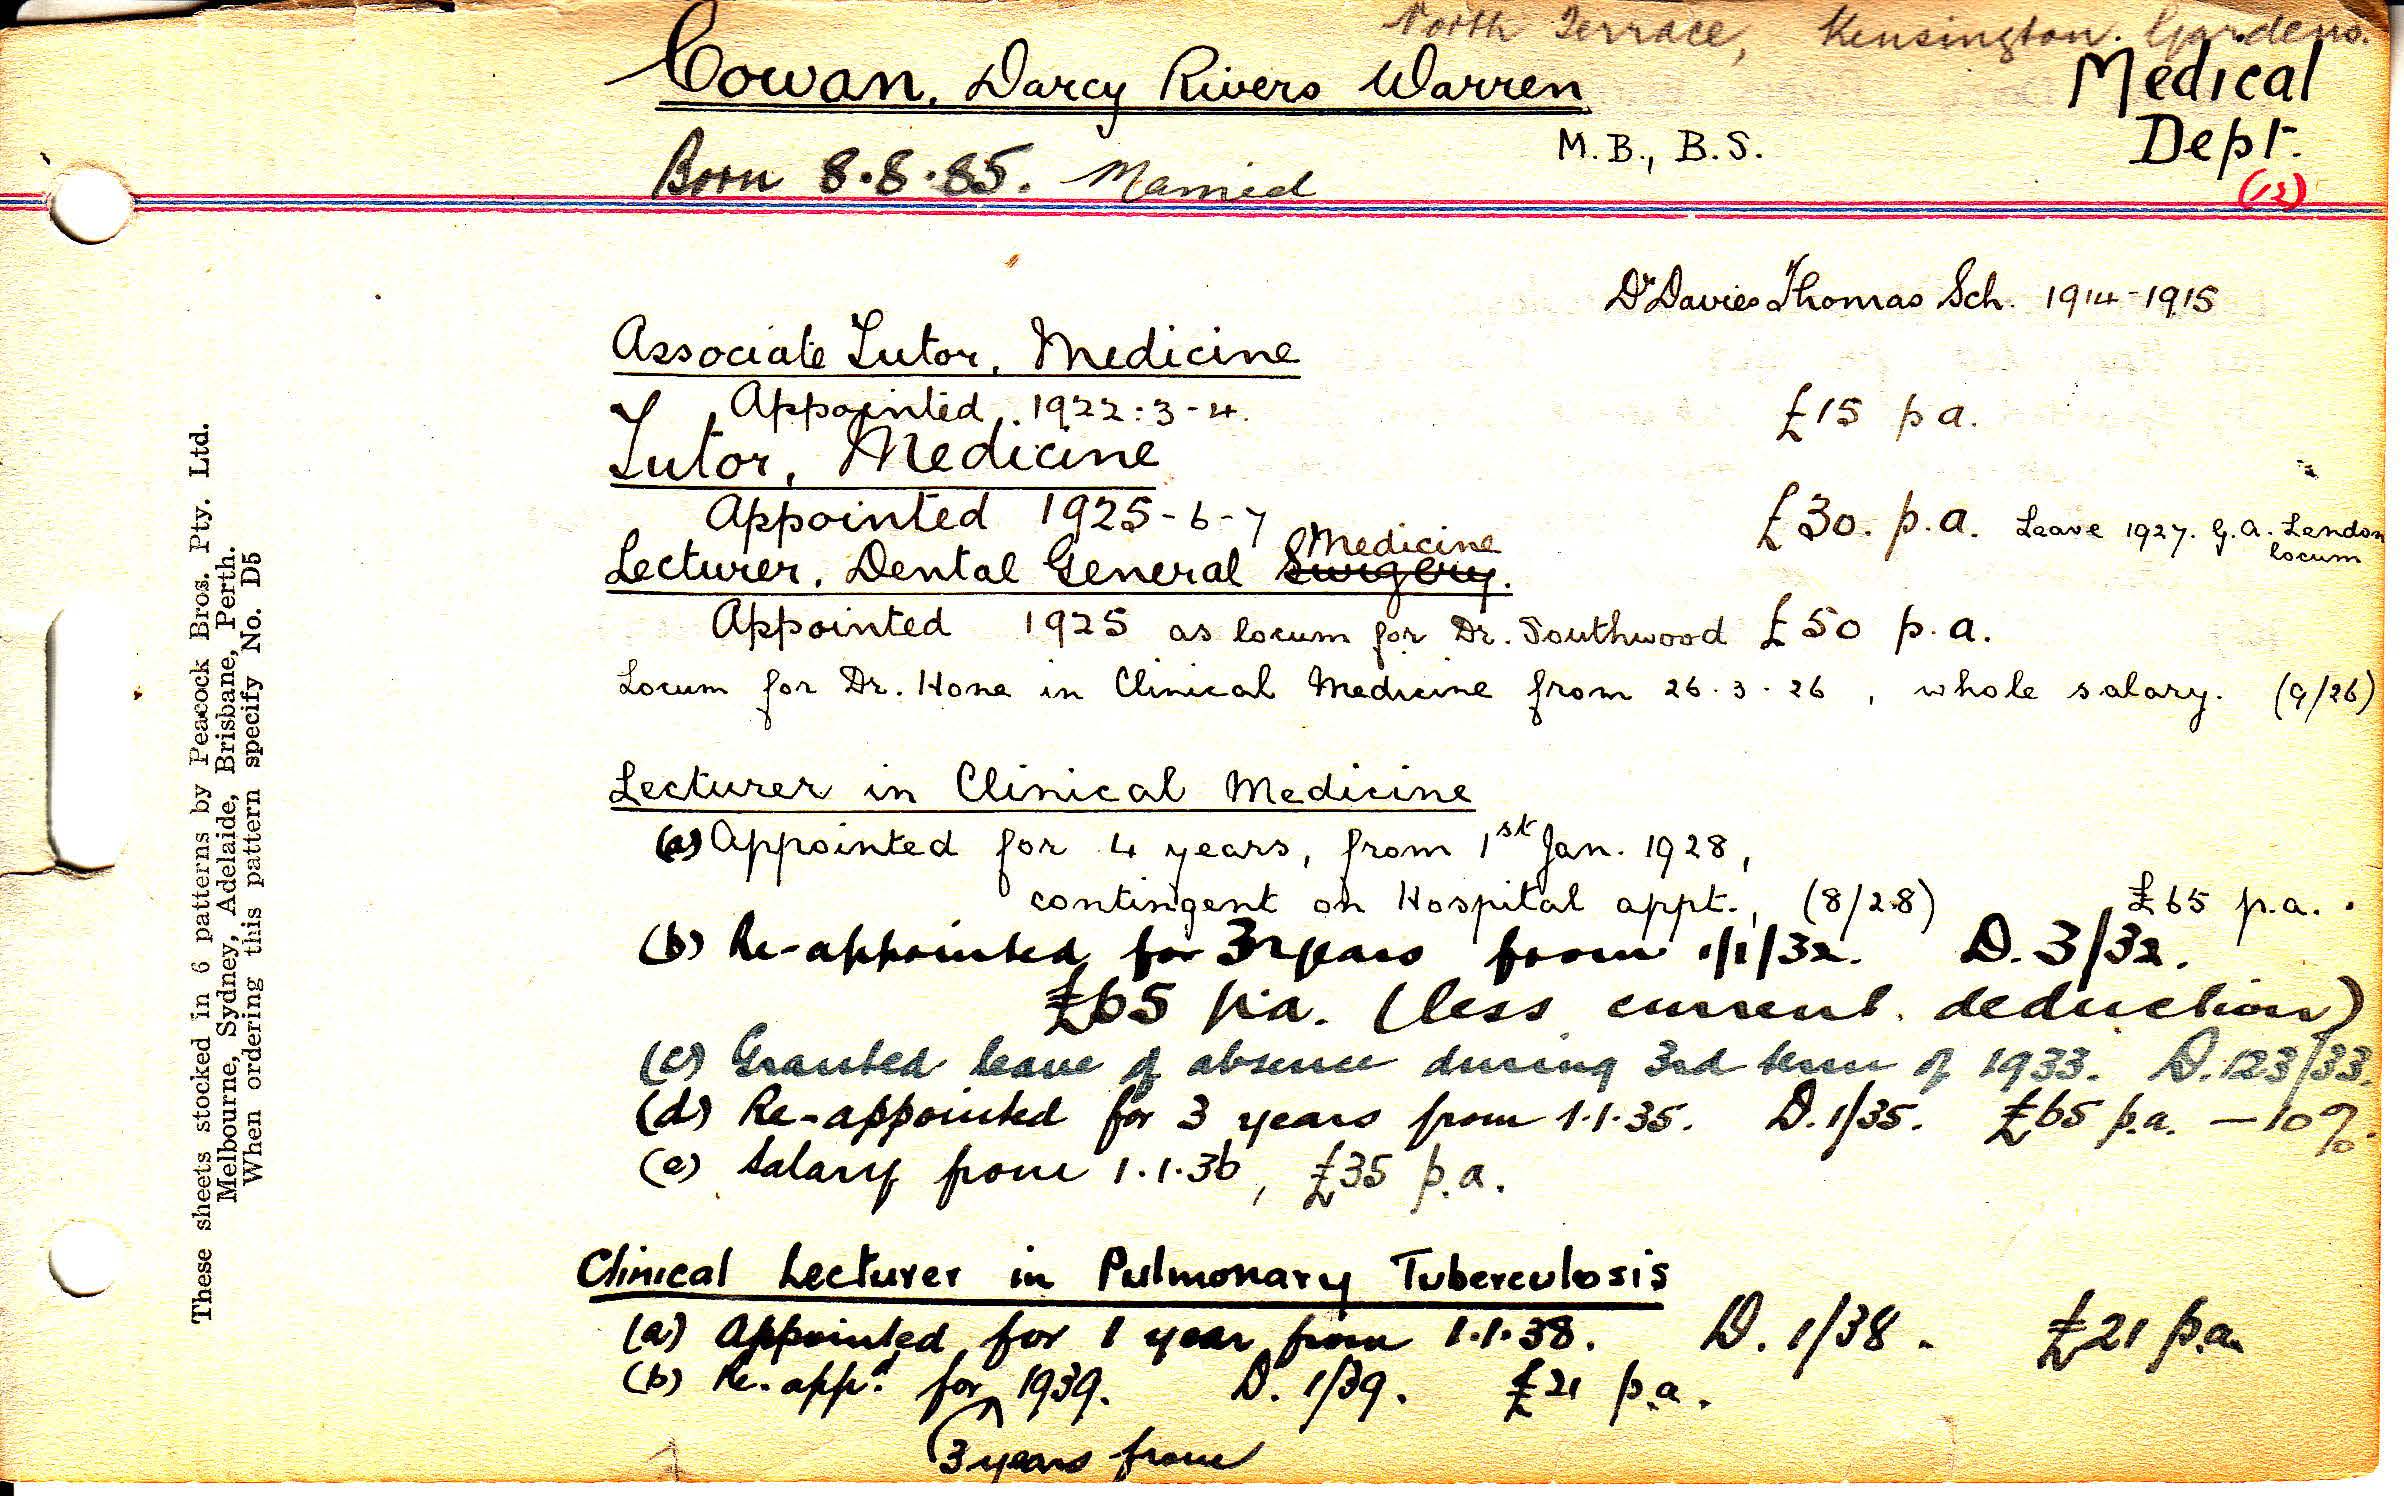 North Terrace, Kensington Gardens.
Cowan, Darcy Rivers Warren
Medical
Dept.
M.B., B.S.
Born 8.8.85. Married
(12)
Dr Davies Thomas Sch. 1914-1915
Associate Tutor, Medicine
Appointed 1922:3-4. £15 p a.
Tutor, Medicine
Appointed 1925-6-7 £30. p.a. Leave 1927. G.A. Lendon
locum
Medicine
Lecturer, Dental General Surgery.
Appointed 1925 as locum for Dr. Southwood £50 p.a.
Locum for Dr. Hone in Clinical Medicine from 26.3.26, whole salary. (9/26)
Lecturer in Clinical Medicine
(a) Appointed for 4 years, from 1st Jan. 1928,
contingent on Hospital appt., (8/28) £65 p.a.
(b) Re-appointed for 3 years from 1/1/32. D. 3/32.
£65 p.a. (less current deduction)
(c) Granted leave of absence during 3rd term of 1933. D.123/33.
(d) Re-appointed for 3 years from 1.1.35. D.1/35. £65 p.a. – 10%.
(e) Salary from 1.1.36, £35 p.a.
Clinical Lecturer in Pulmonary Tuberculosis
(a) Appointed for 1 year from 1.1.38. D. 1/38. £21 p.a.
(b) Re-appd. for 1939. D. 1/39. £21 p.a.
3 years from
These sheets stocked in 6 patterns by Peacock Bros. Pty. Ltd.
Melbourne, Sydney, Adelaide, Brisbane, Perth.
When ordering this pattern specify No. D5